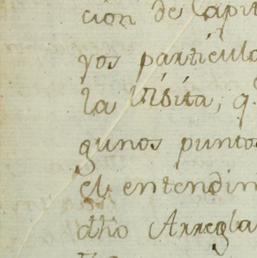 ción de Capit
yos particula
la Visita, q.
gunos puntos
el entendim
dho Arregla